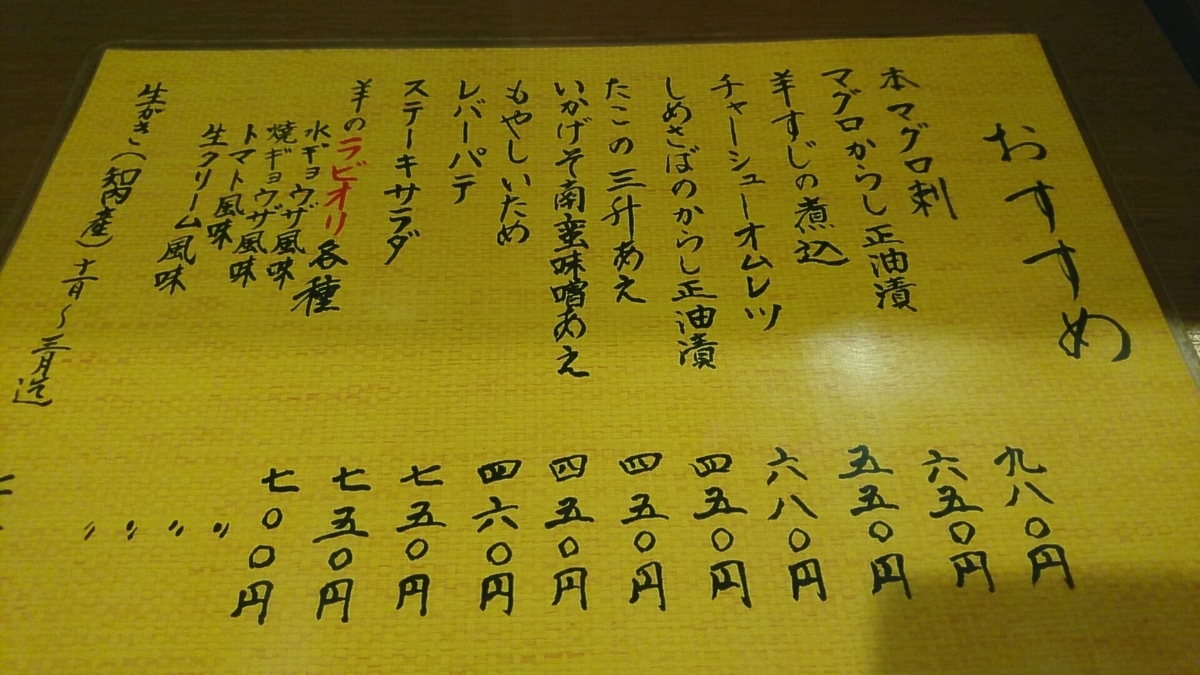 おすすめ
本マグロ刺 九八〇円
マグロからし正油漬 六五〇円
羊すじの煮込 五五〇円
チャーシューオムレツ 六八〇円
しめさばのからし正油漬 四五〇円
たこの三升あえ 四五〇円
いかげそ南蛮味噌あえ 四五〇円
もやしいため 四六〇円
レバーパテ 七五〇円
ステーキサラダ 七五〇円
羊のラビオリ各種 七〇〇円
水ギョウザ風味 〃
焼ギョウザ風味 〃
トマト風味 〃
生クリーム風味 〃
生がき(知内産)十一月〜三月迄